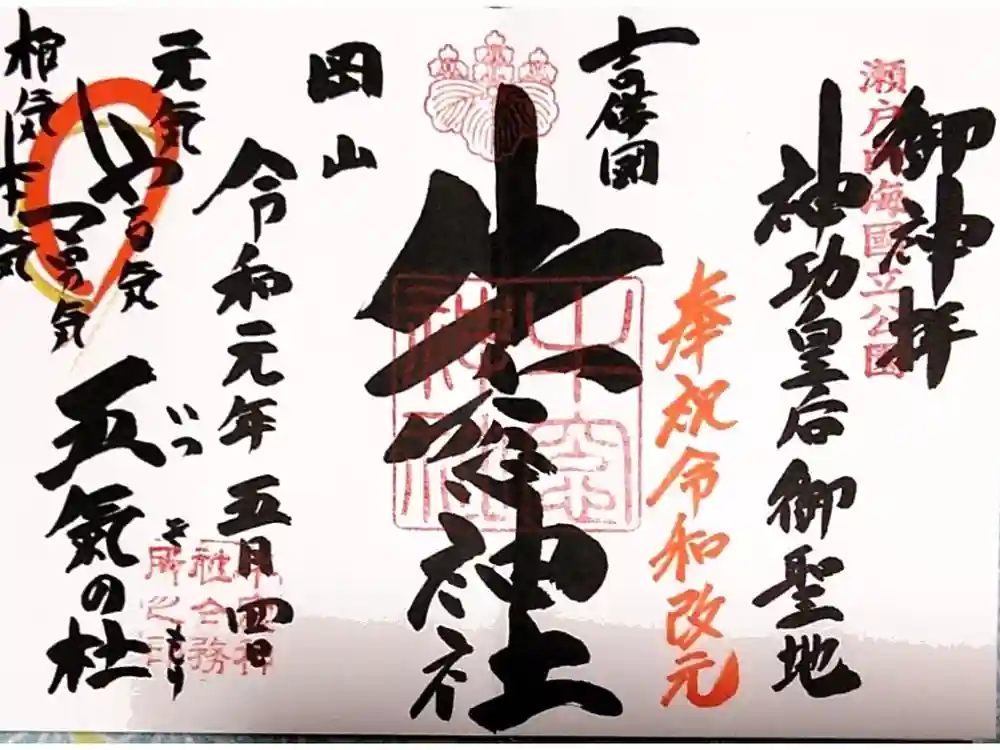 御神拝
瀬戸内海國立公園
神功皇后御聖地
奉祝令和改元
吉備国
牛窓神社
牛窓神社
岡山
令和元年五月四日
元気
やる気
勇気
根気
本気
五氣の杜
いつきもり